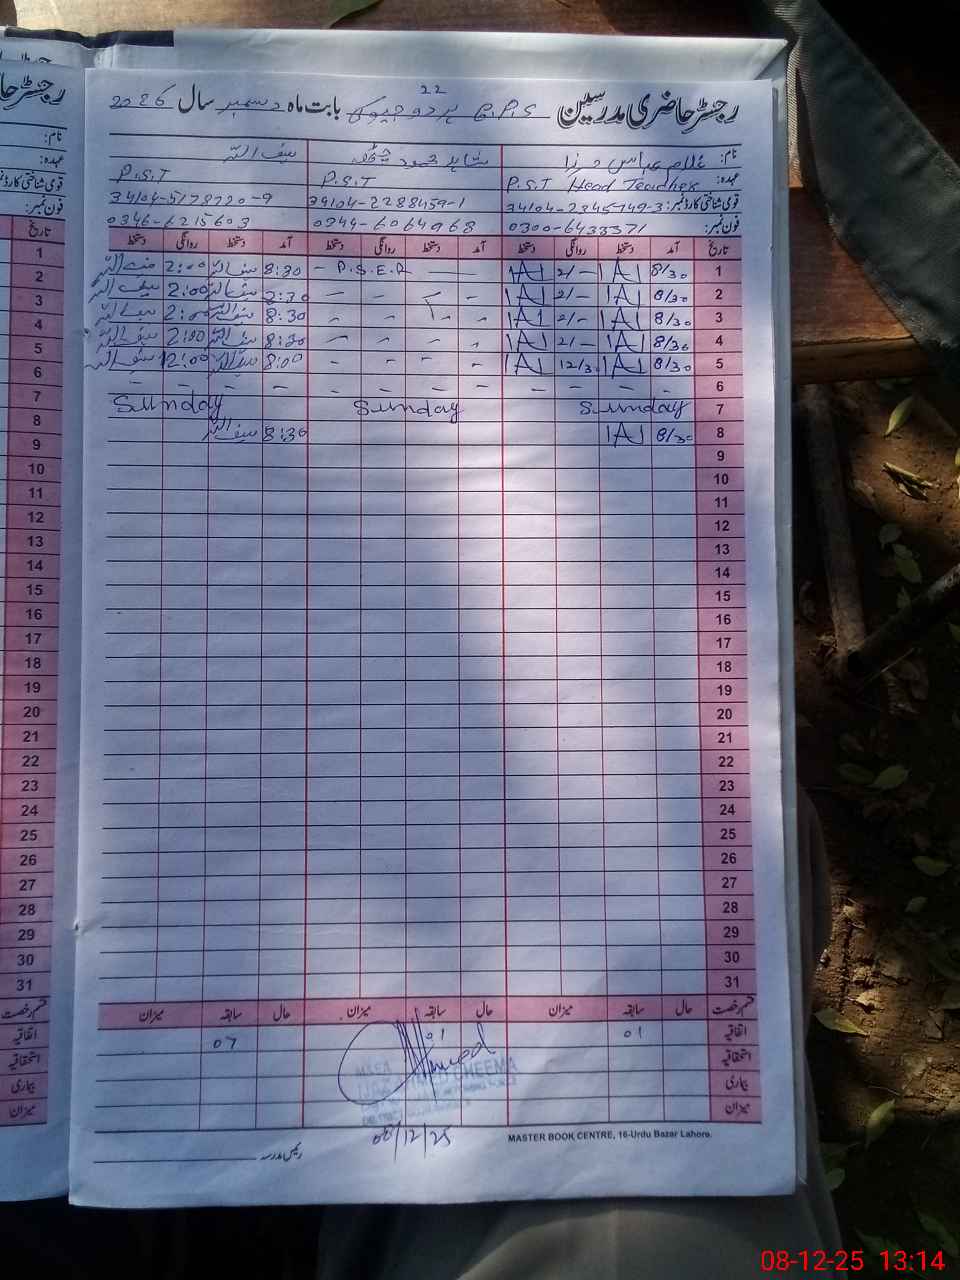 رجسٹر حاضری مدرسین G.P.S بابت ماہ دسمبر سال
22
نام: غلام عباس شاہد محمود سیف اللہ
عہدہ: P.S.T Head Teacher P.S.T P.S.T
قومی شناختی کارڈ نمبر: 34104-2345749-3 34104-2288459-1 34104-5178720-9
فون نمبر: 0300-6433371 0344-6064968 0346-6215603
تاریخ آمد دستخط روانگی دستخط آمد دستخط روانگی دستخط آمد دستخط روانگی دستخط
1 8/30 2/- - P.S.E.R 8:30 سیف اللہ 2:00 سیف اللہ
2 8/30 2/- سیف اللہ 2:00 سیف اللہ
3 8/30 2/- 8:30 سیف اللہ 2:00 سیف اللہ
4 8/30 2/- 8:30 سیف اللہ 2:00 سیف اللہ
5 8/30 12/30 8:00 سیف اللہ 12:00 سیف اللہ
6
7 Sunday Sunday Sunday
8 8/30 8:30 سیف اللہ
9
10
11
12
13
14
15
16
17
18
19
20
21
22
23
24
25
26
27
28
29
30
31
قسم رخصت حال سابقہ میزان حال سابقہ میزان حال سابقہ میزان
اتفاقیہ 01 01 07
استحقاقیہ
بیماری
میزان
08/12/25
MASTER BOOK CENTRE, 16-Urdu Bazar Lahore.
رئیس مدرسہ
08-12-25 13:14